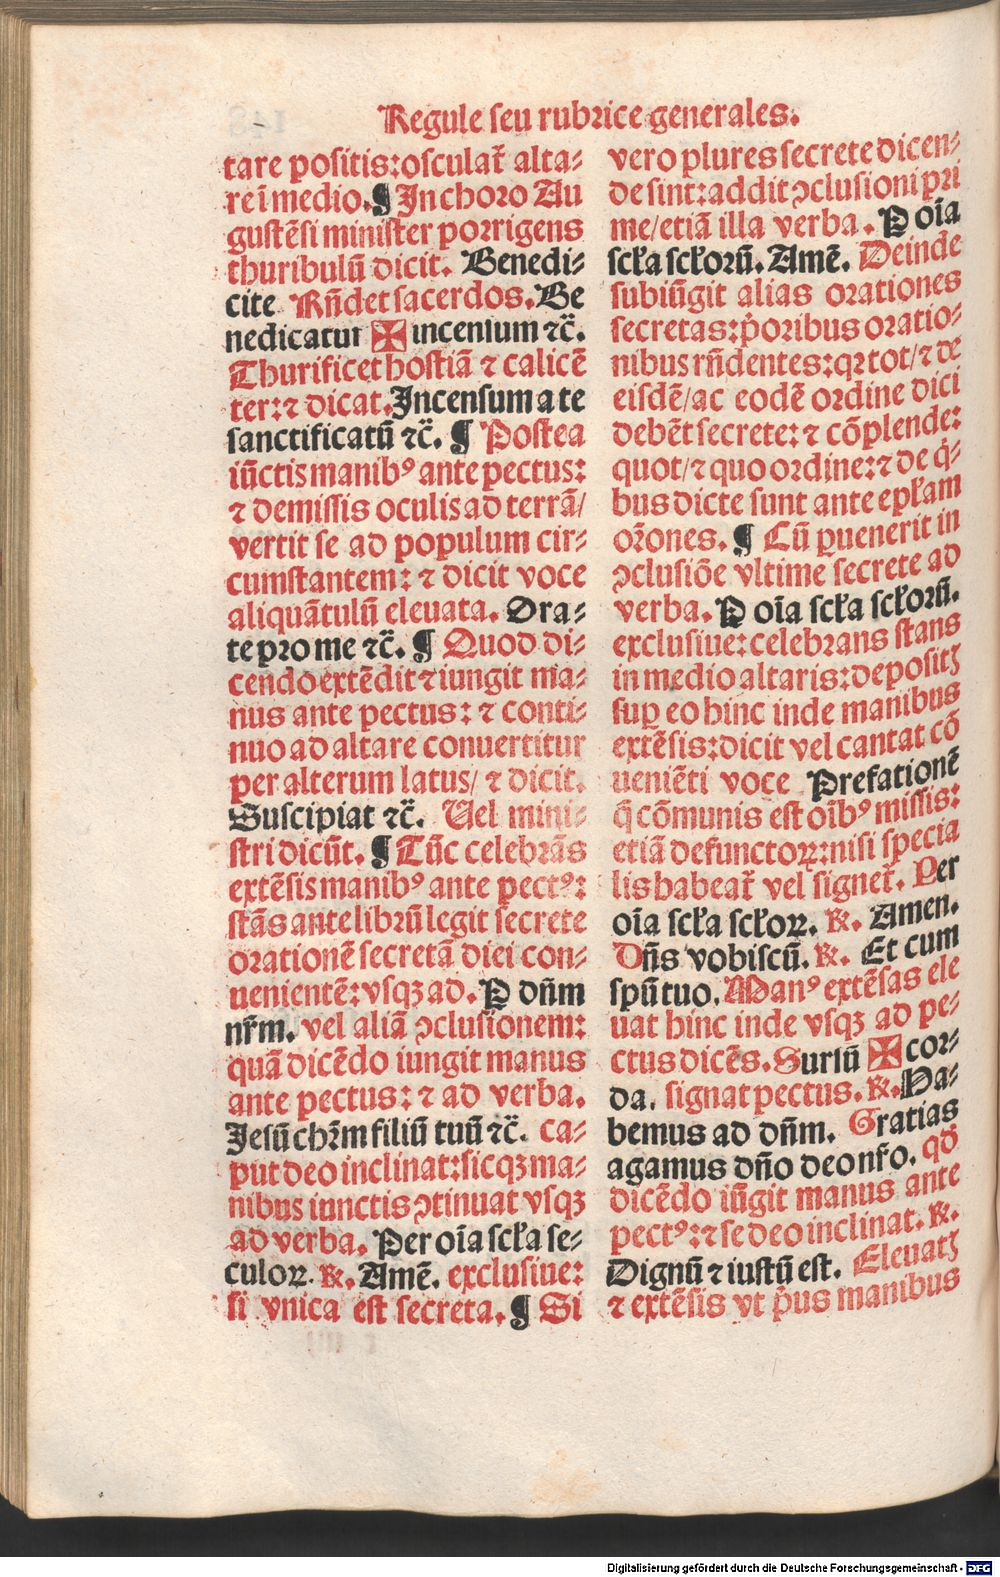 Regule seu rubrice generales.
tare positis: osculat̃ alta⸗
re ĩ medio. ¶ In choro Au
gustẽsi minister porrigens
thuribulũ dicit. Benedi⸗
cite Rñdet sacerdos. Be
nedicatur ✠ incensum ⁊c̃.
Thurificet hostiã ⁊ calicẽ
ter: ⁊ dicat. Incensum a te
sanctificatũ ⁊c̃. ¶ Postea
iũctis manibꝰ ante pectus:
⁊ demissis oculis ad terrã/
vertit se ad populum cir⸗
cumstantem: ⁊ dicit voce
aliquãtulũ eleuata. Ora⸗
te pro me ⁊c̃. ¶ Quod di⸗
cendo extẽdit ⁊ iungit ma⸗
nus ante pectus: ⁊ conti⸗
nuo ad altare conuertitur
per alterum latus/ ⁊ dicit.
Suscipiat ⁊c̃. Uel mini⸗
stri dicũt. ¶ Tũc celebrãs
extẽsis manibꝰ ante pectꝰ:
stãs ante librũ legit secrete
orationẽ secretã diei con⸗
uenientẽ: vsqꝫ ad. P dñm
nr̃m. vel aliã ↄclusionem:
quã dicẽdo iungit manus
ante pectus: ⁊ ad verba.
Jesũ chr̃m filiũ tuũ ⁊c̃. ca⸗
put deo inclinat: sicqꝫ ma⸗
nibus iunctis ↄtinuat vsqꝫ
ad verba. Per oĩa scła se⸗
culoꝝ. ℟. Amẽ. exclusiue:
si vnica est secreta. ¶ Si
vero plures secrete dicen⸗
de sint: addit ↄclusioni pri
me/ etiã illa verba. P oĩa
scła scłorũ. Amẽ. Deinde
subiũgit alias orationes
secretas: p̃oribus oratio⸗
nibus rñdentes: qꝛ tot/ ⁊ de
eisdẽ/ ac eodẽ ordine dici
debẽt secrete: ⁊ cõplende:
quot/ ⁊ quo ordine: ⁊ de q̃⸗
bus dicte sunt ante epłam
or̃ones. ¶ Cũ ꝑuenerit in
ↄclusiõe vltime secrete ad
verba. P oĩa scła scłorũ.
exclusiue: celebrans stans
in medio altaris: depositꝫ
suꝑ eo hinc inde manibus
extẽsis: dicit vel cantat cõ
ueniẽti voce Prefationẽ
q̃ cõmunis est oĩbꝰ missis:
etiã defunctoꝝ: nisi specia
lis habeat̃ vel signet̃. Per
oĩa scła scłoꝝ. ℟. Amen.
Dñs vobiscũ. ℟. Et cum
spũ tuo. Manꝰ extẽsas ele
uat hinc inde vsqꝫ ad pe⸗
ctus dicẽs. Sursũ ✠ cor⸗
da. signat pectus. ℟. Ha⸗
bemus ad dñm. Gratias
agamus dño deo nr̃o. qd̃
dicẽdo iũgit manus ante
pectꝰ: ⁊ se deo inclinat. ℟.
Dignũ ⁊ iustũ est. Eleuatꝫ
⁊ extẽsis vt p̃us manibus
Digitalisierung gefördert durch die Deutsche Forschungsgemeinschaft - DFG